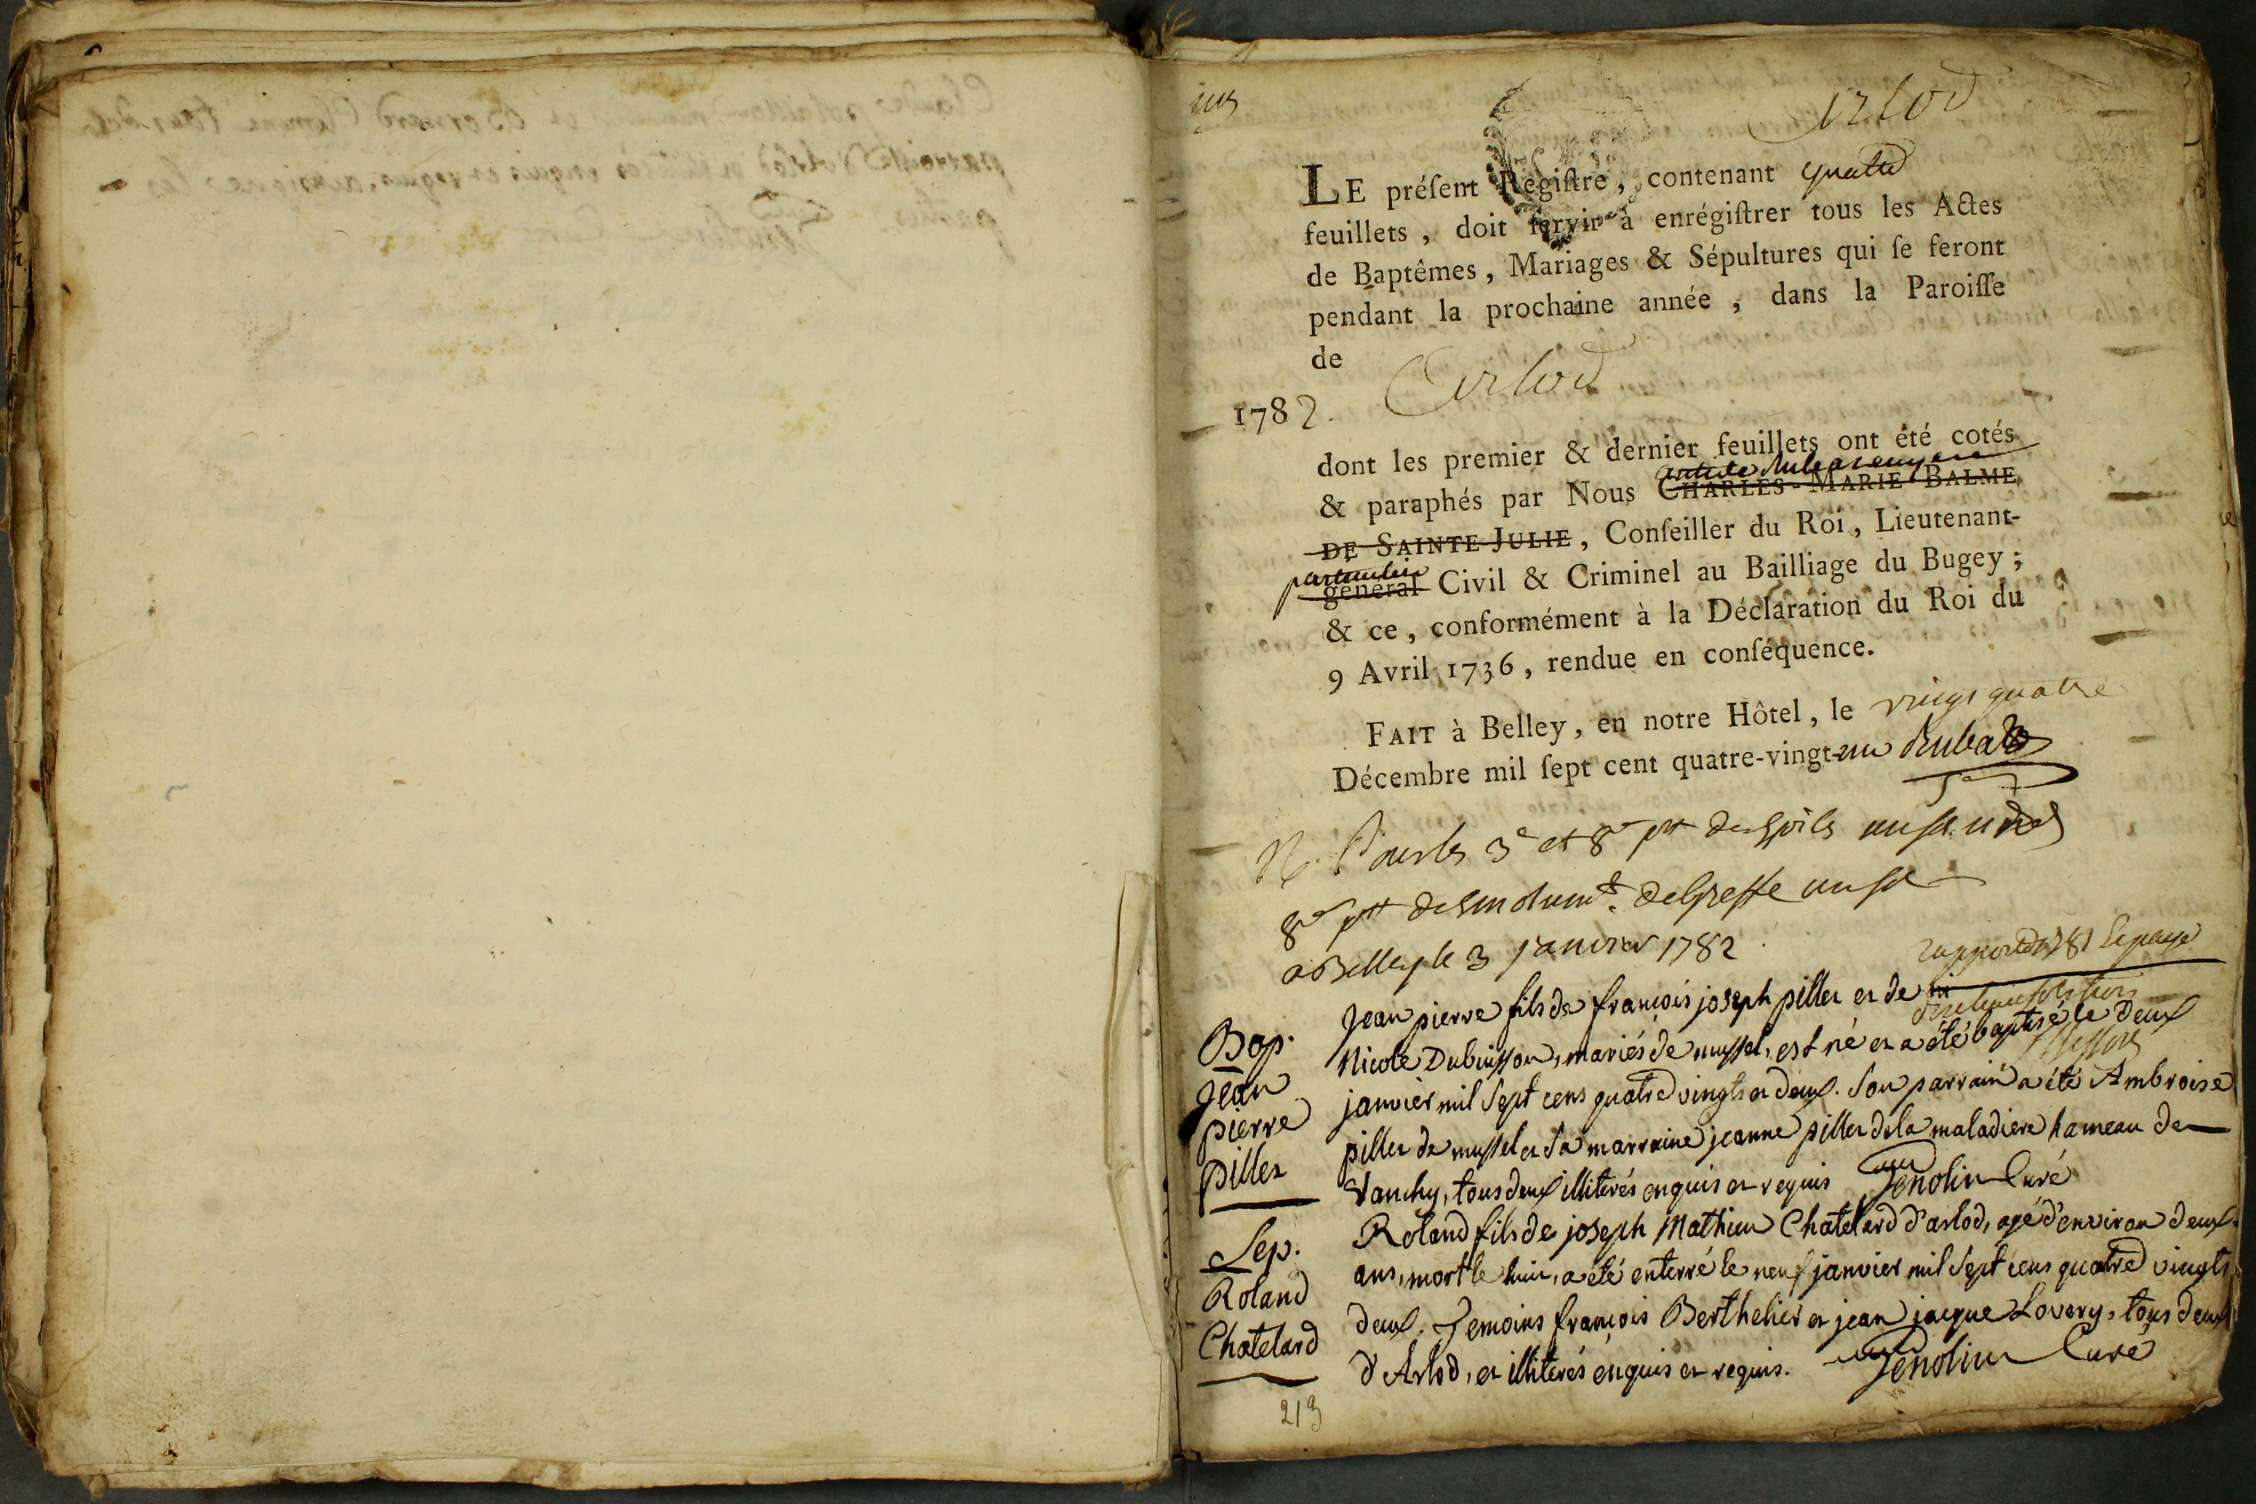 Arlod
LE préſent Regiſtre, contenant quatre
feuillets, doit ſervir à enrégiſtrer tous les Actes
de Baptêmes, Mariages & Sépultures qui ſe feront
pendant la prochaine année, dans la Paroiſſe
de Arlod
1782.
dont les premier & dernier feuillets ont été cotés
& paraphés par Nous CHARLES-MARIE BALME
DE SAINTE-JULIE, Conſeiller du Roi, Lieutenant-
particulier
général Civil & Criminel au Bailliage du Bugey;
& ce, conformément à la Déclaration du Roi du
9 Avril 1736, rendue en conſéquence.
FAIT à Belley, en notre Hôtel, le vingt quatre
Décembre mil ſept cent quatre-vingt-un
R. Pour les 3e et 8e
8e du Greffe un sol
a Belley le 3 janvier 1782
Bap.
Jean
pierre
piller
Jean pierre fils de françois joseph piller et de
Nicole Dubuisson, mariés de mussel, est né et a été baptisé le deux
janvier mil sept cens quatre vingts et deux. Son parrain a été Ambroise
piller de mussel et sa marraine jeanne piller de la maladiere hameau de
Vanchy, tous deux illiterés enquis et requis Genolin Curé
Sep.
Roland
Chatelard
Roland fils de joseph Mathieu Chatelard d'arlod, agé d'environ deux
ans, mort le huit, a été enterré le neuf janvier mil sept cens quatre vingts
deux. Temoins françois Berthelier et jean jacque Lovery, tous deux
d'Arlod, et illiterés enquis et requis. Genolin Curé
213